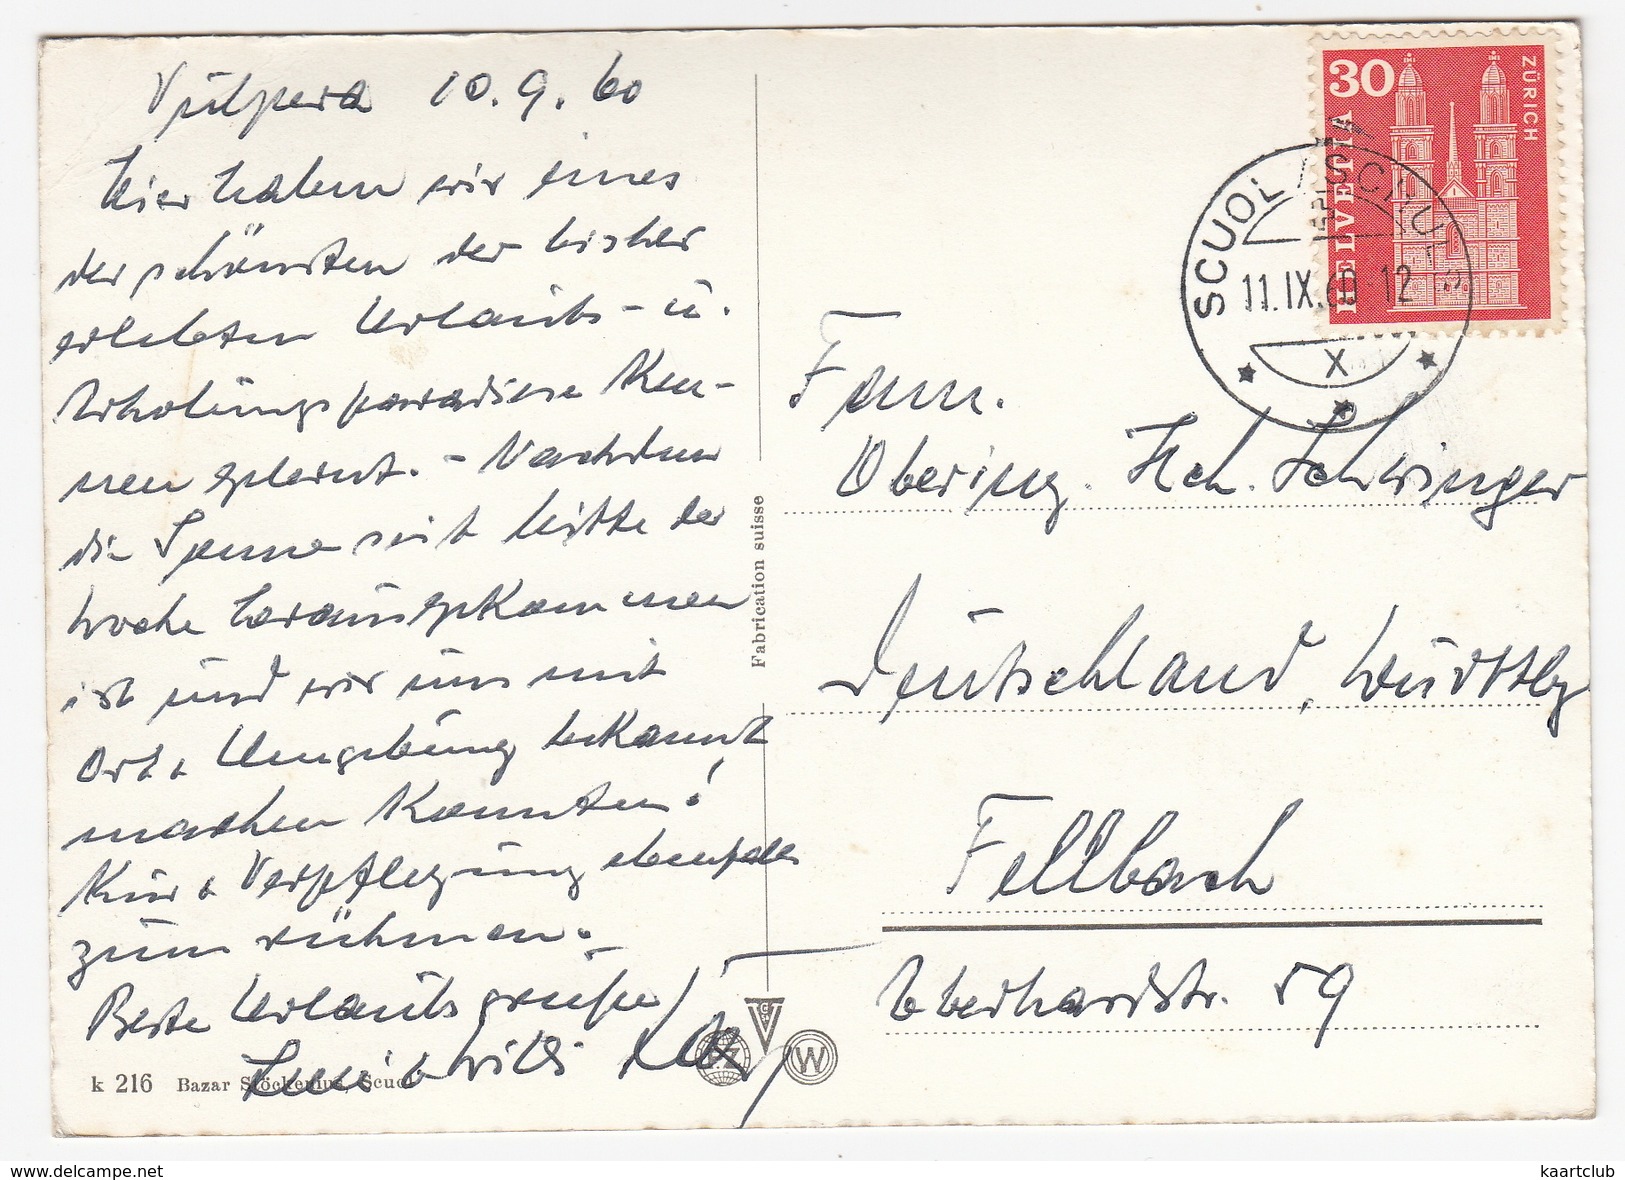 Vulpera 10.9.60
Hier haben wir eines
der schönsten der bisher
erlebten Urlaubs- u.
Erholungsparadiese Ken-
nen gelernt. - Nachdem
die Sonne seit Mitte der
Woche herausgekommen
ist und wir uns mit
Ort & Umgebung bekannt
machen konnten!
Kur & Verpflegung ebenfalls
zum rühmen. -
Beste Urlaubsgrüße
& Willi
k 216 Bazar Stöckenius, Scuol
Fabrication suisse
W
30
HELVETIA
ZÜRICH
SCUOL / SCHULS
11.IX.60-12
X
Fam.
Obering. Hch. Schwinger
Deutschland, Württbg
Fellbach
Eberhardstr. 59
www.delcampe.net
kaartclub